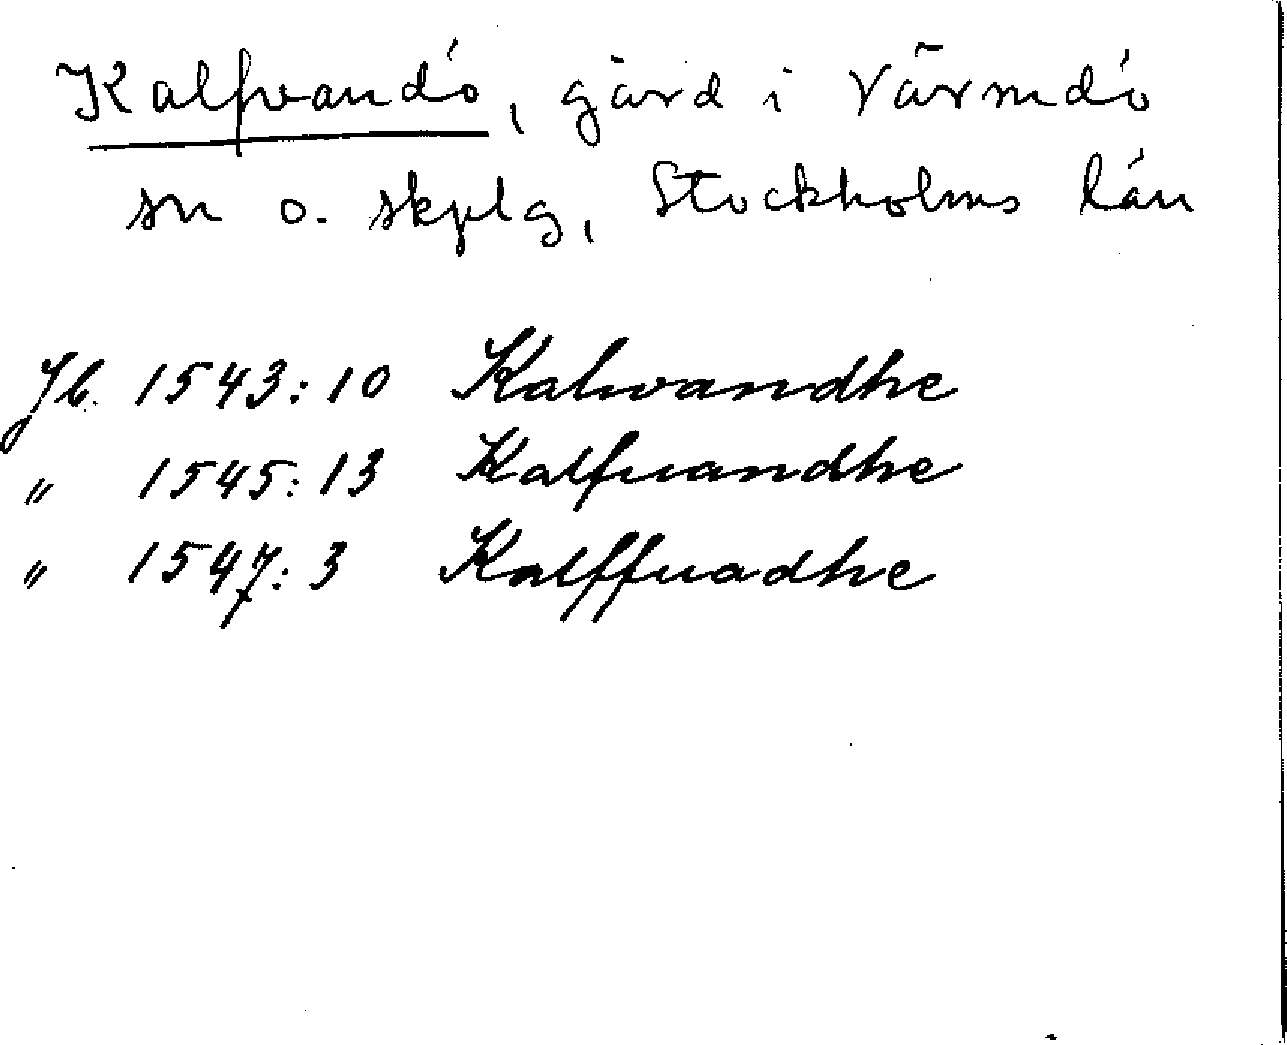 Kalfvandö, gård i Värmdö
sn o. skplg, Stockholms län
Jb. 1543:10 Kalwandhe
" 1545:13 Kalfuandhe
" 1547:3 Kalffuadhe